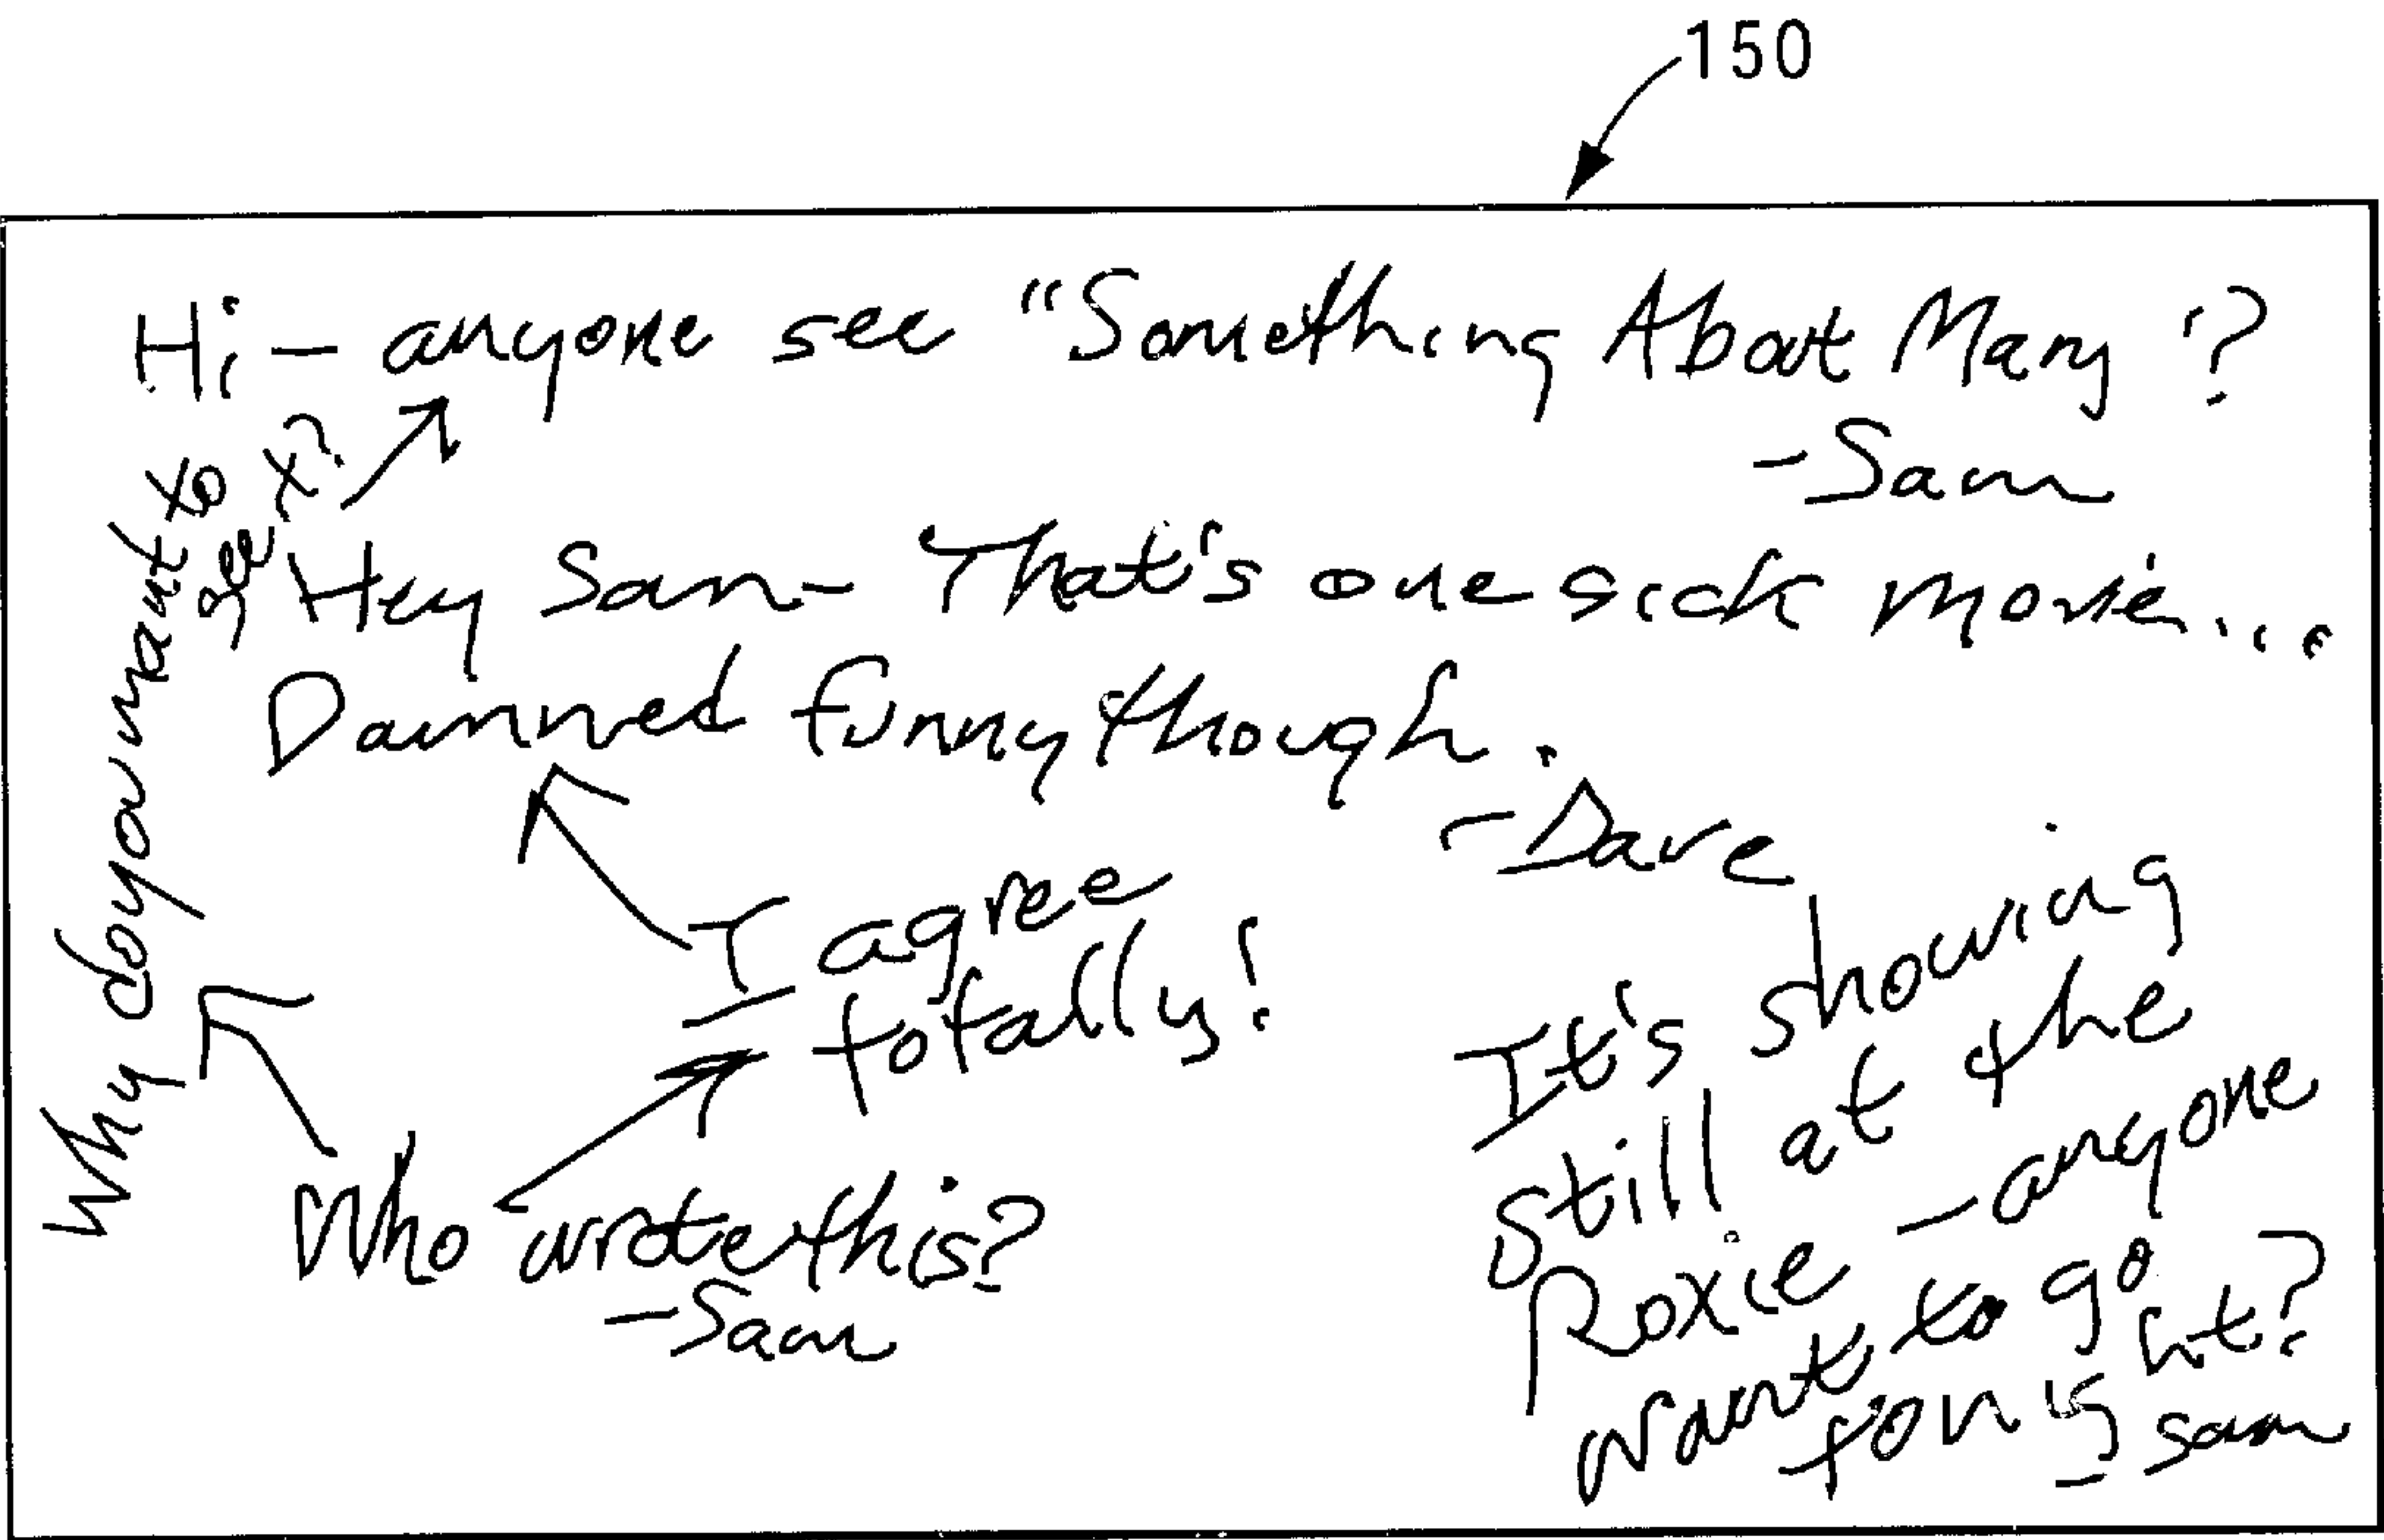 150
Hi - anyone see "Something About Mary ?
- Sam
Why do you want to
see it?
Hey Sam - That's one sick movie...
Damned funny though.
- Dave
I agree
totally!
Who wrote this?
- Sam
It's showing
still at the
Roxie - anyone
want to go
tonight?
- Sam